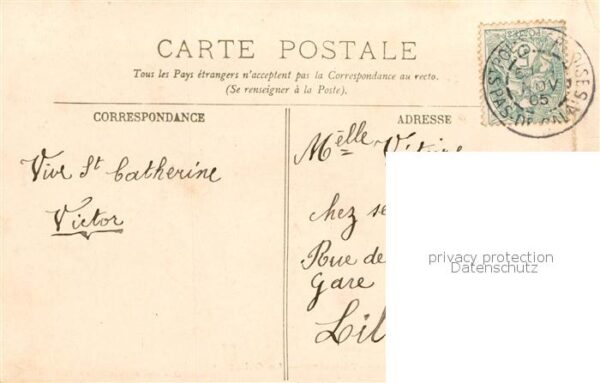 CARTE POSTALE
Tous les Pays étrangers n'acceptent pas la Correspondance au recto.
(Se renseigner à la Poste).
CORRESPONDANCE
Vive St Catherine
Victor
ADRESSE
Melle
chez
Rue de
Gare
Lil
PAS-DE-CALAIS
05
privacy protection
Datenschutz